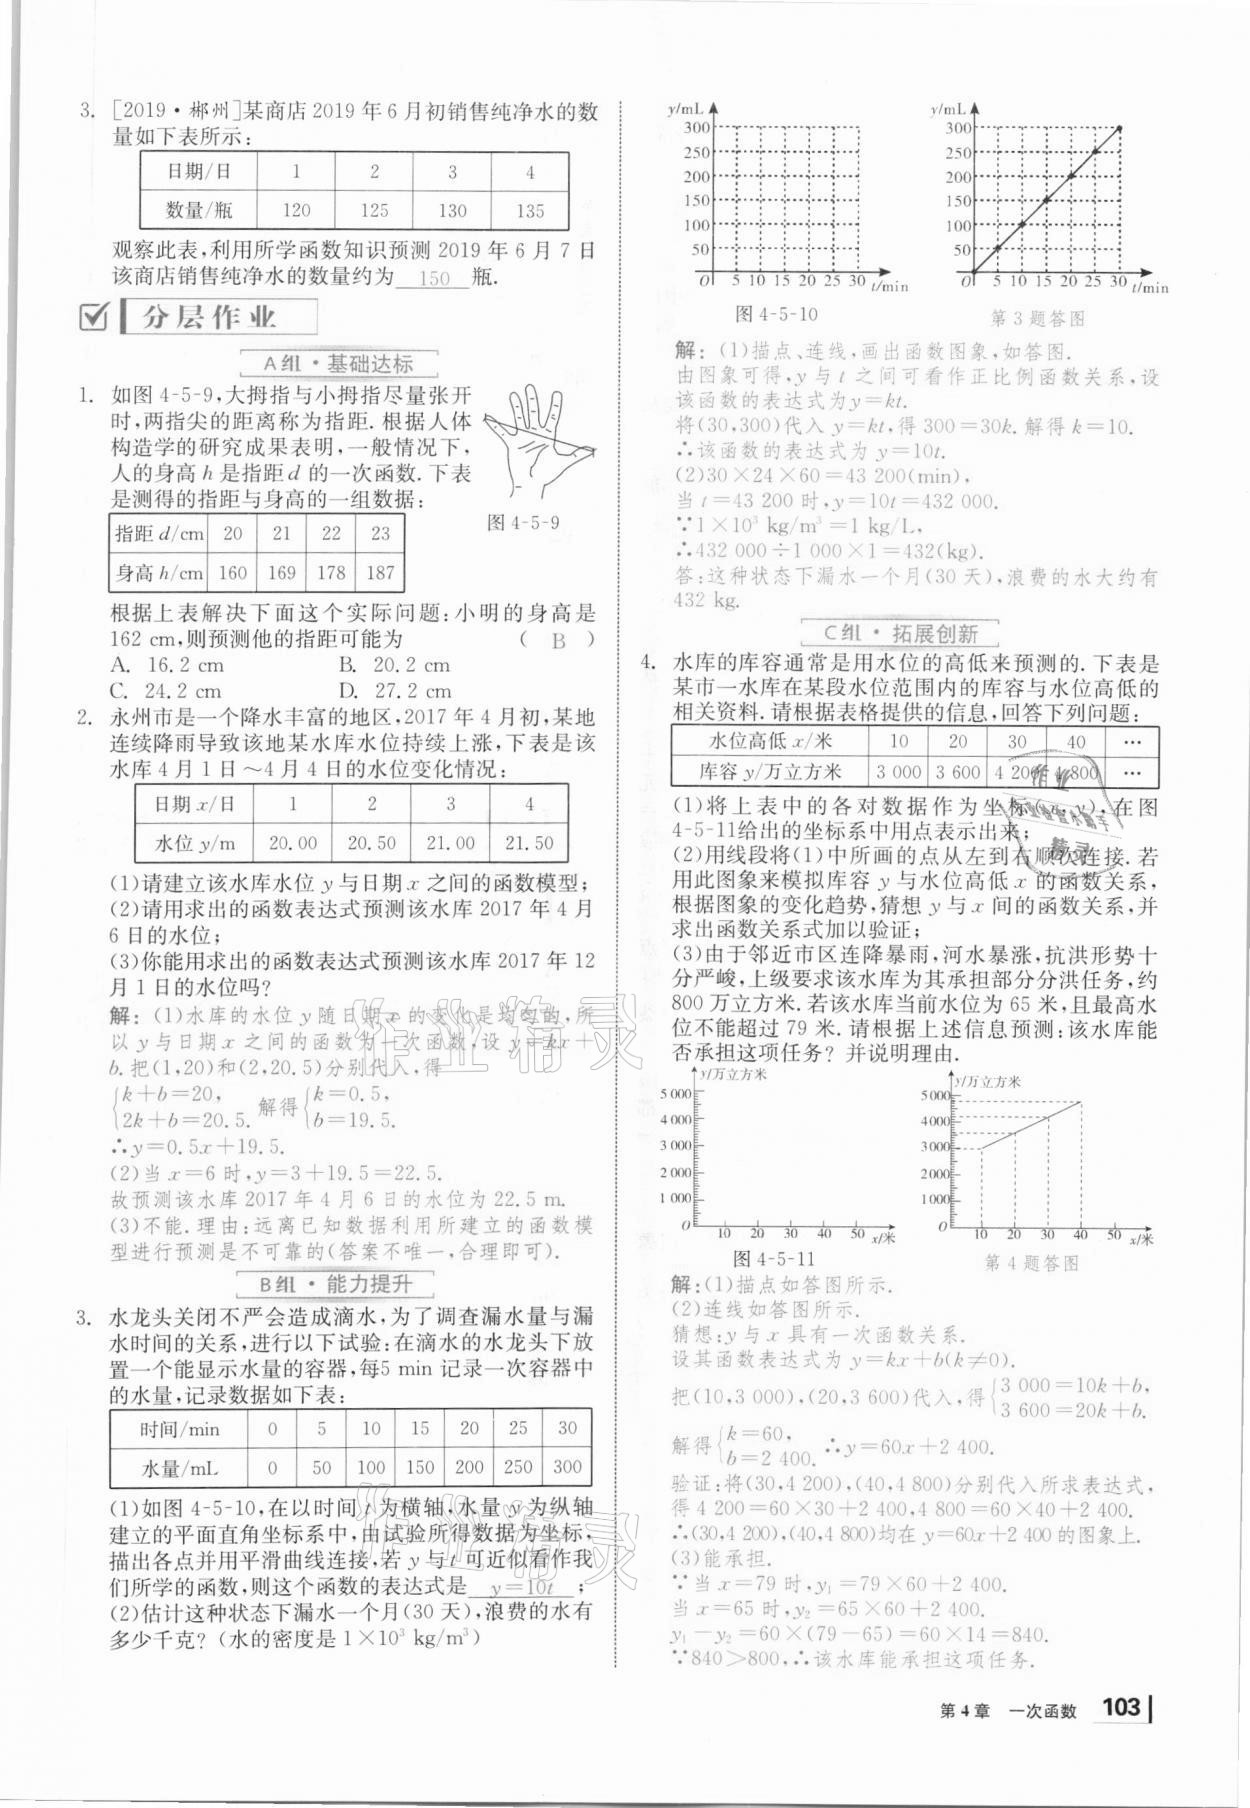 3. [2019·郴州]某商店2019年6月初销售纯净水的数
量如下表所示:
日期/日 1 2 3 4
数量/瓶 120 125 130 135
观察此表,利用所学函数知识预测2019年6月7日
该商店销售纯净水的数量约为 150 瓶.
分层作业
A组·基础达标
1. 如图4-5-9,大拇指与小拇指尽量张开
时,两指尖的距离称为指距.根据人体
构造学的研究成果表明,一般情况下,
人的身高h是指距d的一次函数.下表
是测得的指距与身高的一组数据:
图4-5-9
指距d/cm 20 21 22 23
身高h/cm 160 169 178 187
根据上表解决下面这个实际问题:小明的身高是
162 cm,则预测他的指距可能为 ( B )
A. 16.2 cm B. 20.2 cm
C. 24.2 cm D. 27.2 cm
2. 永州市是一个降水丰富的地区,2017年4月初,某地
连续降雨导致该地某水库水位持续上涨,下表是该
水库4月1日~4月4日的水位变化情况:
日期x/日 1 2 3 4
水位y/m 20.00 20.50 21.00 21.50
(1)请建立该水库水位y与日期x之间的函数模型;
(2)请用求出的函数表达式预测该水库2017年4月
6日的水位;
(3)你能用求出的函数表达式预测该水库2017年12
月1日的水位吗?
解:(1)水库的水位y随日期x的变化是均匀的,所
以y与日期x之间的函数为一次函数,设y=kx+
b.把(1,20)和(2,20.5)分别代入,得
{k+b=20, 2k+b=20.5. 解得{k=0.5, b=19.5.
∴y=0.5x+19.5.
(2)当x=6时,y=3+19.5=22.5.
故预测该水库2017年4月6日的水位为22.5 m.
(3)不能.理由:远离已知数据利用所建立的函数模
型进行预测是不可靠的(答案不唯一,合理即可).
B组·能力提升
3. 水龙头关闭不严会造成滴水,为了调查漏水量与漏
水时间的关系,进行以下试验:在滴水的水龙头下放
置一个能显示水量的容器,每5 min记录一次容器中
的水量,记录数据如下表:
时间/min 0 5 10 15 20 25 30
水量/mL 0 50 100 150 200 250 300
(1)如图4-5-10,在以时间t为横轴,水量y为纵轴
建立的平面直角坐标系中,由试验所得数据为坐标,
描出各点并用平滑曲线连接,若y与t可近似看作我
们所学的函数,则这个函数的表达式是 y=10t ;
(2)估计这种状态下漏水一个月(30天),浪费的水有
多少千克?(水的密度是1×10³ kg/m³)
y/mL
300
250
200
150
100
50
O 5 10 15 20 25 30 t/min
图4-5-10
y/mL
300
250
200
150
100
50
O 5 10 15 20 25 30 t/min
第3题答图
解:(1)描点、连线,画出函数图象,如答图.
由图象可得,y与t之间可看作正比例函数关系,设
该函数的表达式为y=kt.
将(30,300)代入y=kt,得300=30k.解得k=10.
∴该函数的表达式为y=10t.
(2)30×24×60=43 200(min),
当t=43 200时,y=10t=432 000.
∵1×10³ kg/m³=1 kg/L,
∴432 000÷1 000×1=432(kg).
答:这种状态下漏水一个月(30天),浪费的水大约有
432 kg.
C组·拓展创新
4. 水库的库容通常是用水位的高低来预测的.下表是
某市一水库在某段水位范围内的库容与水位高低的
相关资料.请根据表格提供的信息,回答下列问题:
水位高低x/米 10 20 30 40 …
库容y/万立方米 3 000 3 600 4 200 4 800 …
(1)将上表中的各对数据作为坐标(x,y),在图
4-5-11给出的坐标系中用点表示出来;
(2)用线段将(1)中所画的点从左到右顺次连接.若
用此图象来模拟库容y与水位高低x的函数关系,
根据图象的变化趋势,猜想y与x间的函数关系,并
求出函数关系式加以验证;
(3)由于邻近市区连降暴雨,河水暴涨,抗洪形势十
分严峻,上级要求该水库为其承担部分分洪任务,约
800万立方米.若该水库当前水位为65米,且最高水
位不能超过79米.请根据上述信息预测:该水库能
否承担这项任务?并说明理由.
y/万立方米
5 000
4 000
3 000
2 000
1 000
O 10 20 30 40 50 x/米
图4-5-11
y/万立方米
5 000
4 000
3 000
2 000
1 000
O 10 20 30 40 50 x/米
第4题答图
解:(1)描点如答图所示.
(2)连线如答图所示.
猜想:y与x具有一次函数关系.
设其函数表达式为y=kx+b(k≠0).
把(10,3 000),(20,3 600)代入,得{3 000=10k+b, 3 600=20k+b.
解得{k=60, b=2 400. ∴y=60x+2 400.
验证:将(30,4 200),(40,4 800)分别代入所求表达式,
得4 200=60×30+2 400,4 800=60×40+2 400.
∴(30,4 200),(40,4 800)均在y=60x+2 400的图象上.
(3)能承担.
∵当x=79时,y₁=79×60+2 400.
当x=65时,y₂=65×60+2 400.
y₁-y₂=60×(79-65)=60×14=840.
∵840>800,∴该水库能承担这项任务.
第4章 一次函数 103
作业精灵
作业精灵